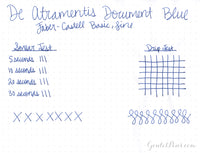 De Atramentis Document Blue
Faber-Castell Basic, fine
Smear Test
5 seconds
10 seconds
20 seconds
30 seconds
Drip Test
XXXXXXX